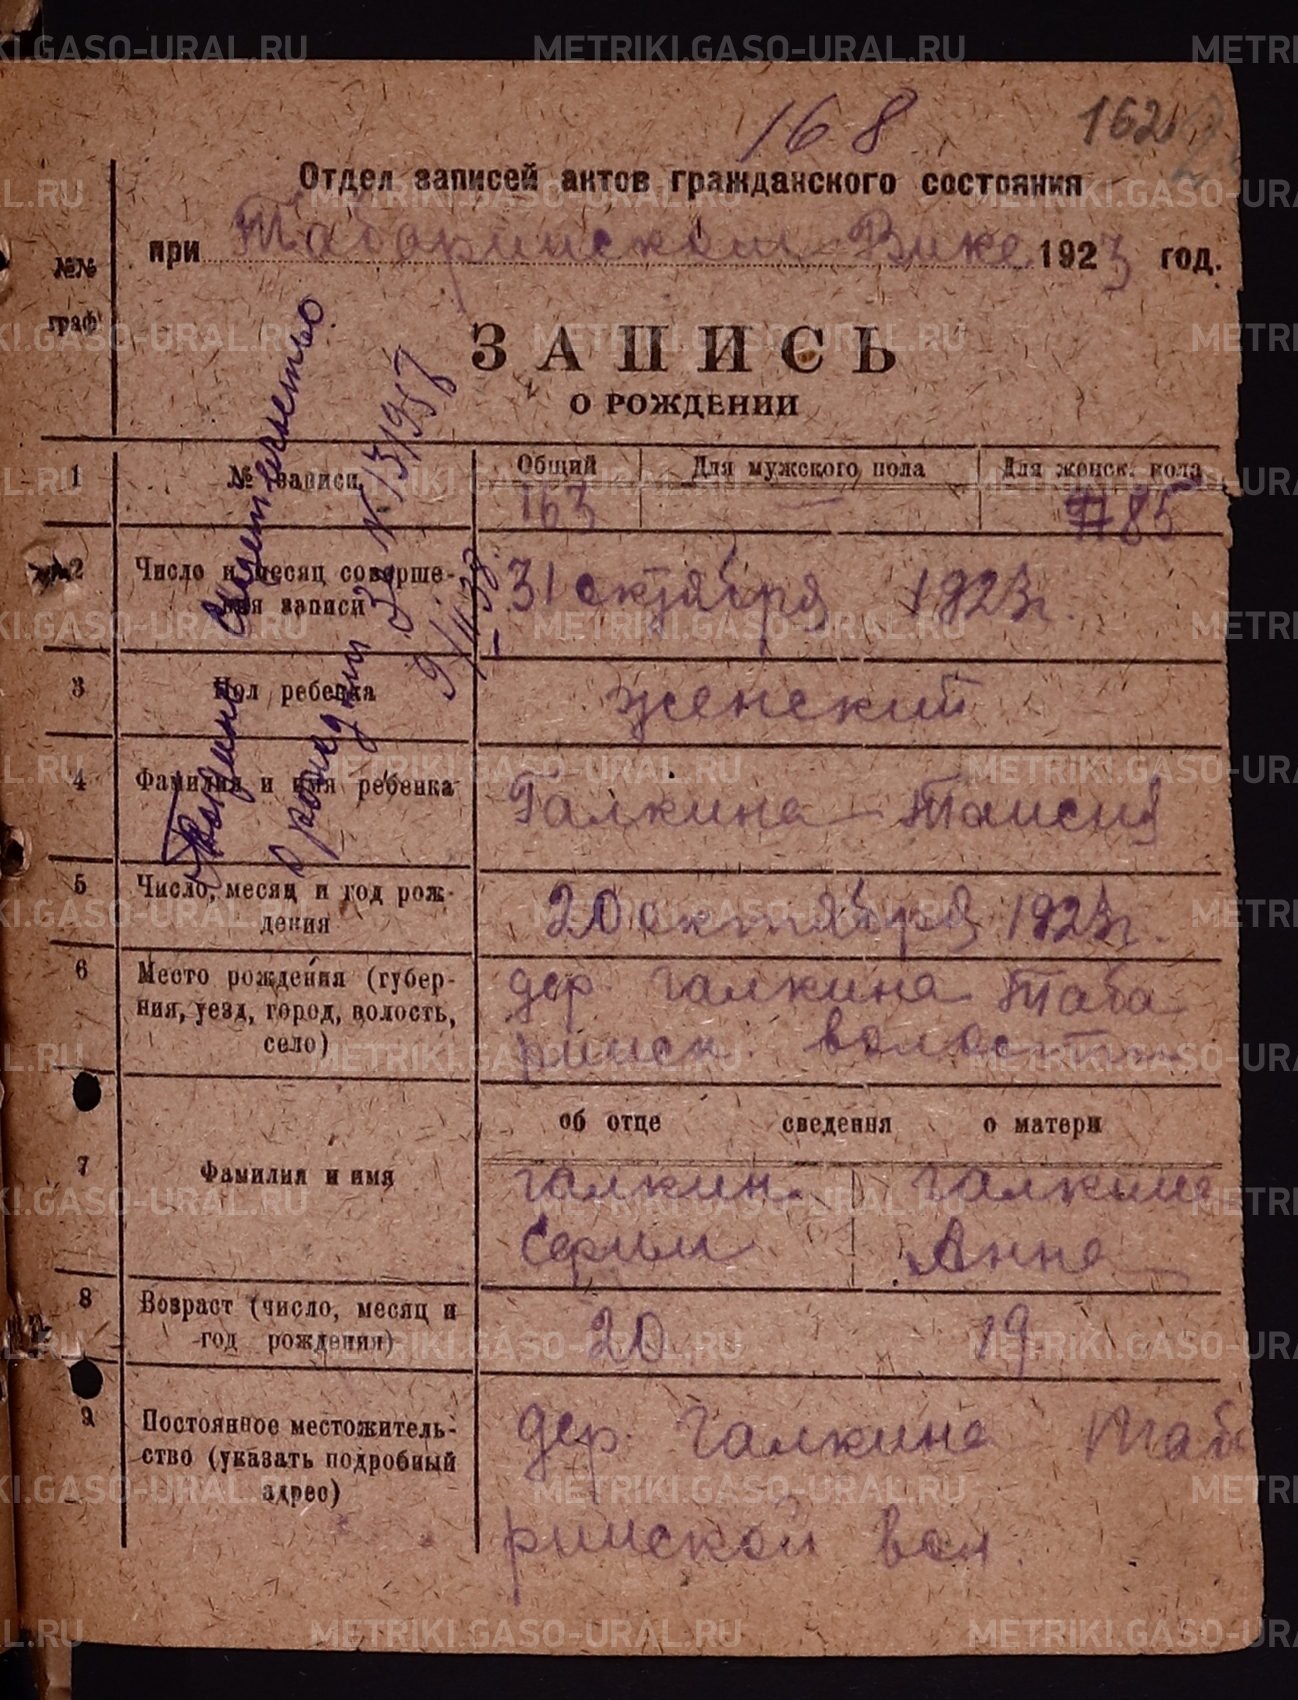 168
162
Отдел записей актов гражданского состояния
при Таборинском Вике 1923 год.
№№
граф
ЗАПИСЬ
О РОЖДЕНИИ
1 № записи Общий Для мужского пола Для женск. пола
163 — 85
2 Число и месяц соверше-
ния записи 31 октября 1923 г.
3 Пол ребенка женский
4 Фамилия и имя ребенка Галкина Таисия
5 Число, месяц и год рож-
дения 20 октября 1923 г.
6 Место рождения (губер-
ния, уезд, город, волость,
село)
дер. Галкина Таба
ринск. волости
об отце сведения о матери
7 Фамилия и имя
Галкин Галкина
Анна
8 Возраст (число, месяц и
год рождения) 20 19
9 Постоянное местожитель-
ство (указать подробный
адрес)
дер. Галкина Таба
ринской вол
свидетельство
о рождении
METRIKI.GASO-URAL.RU